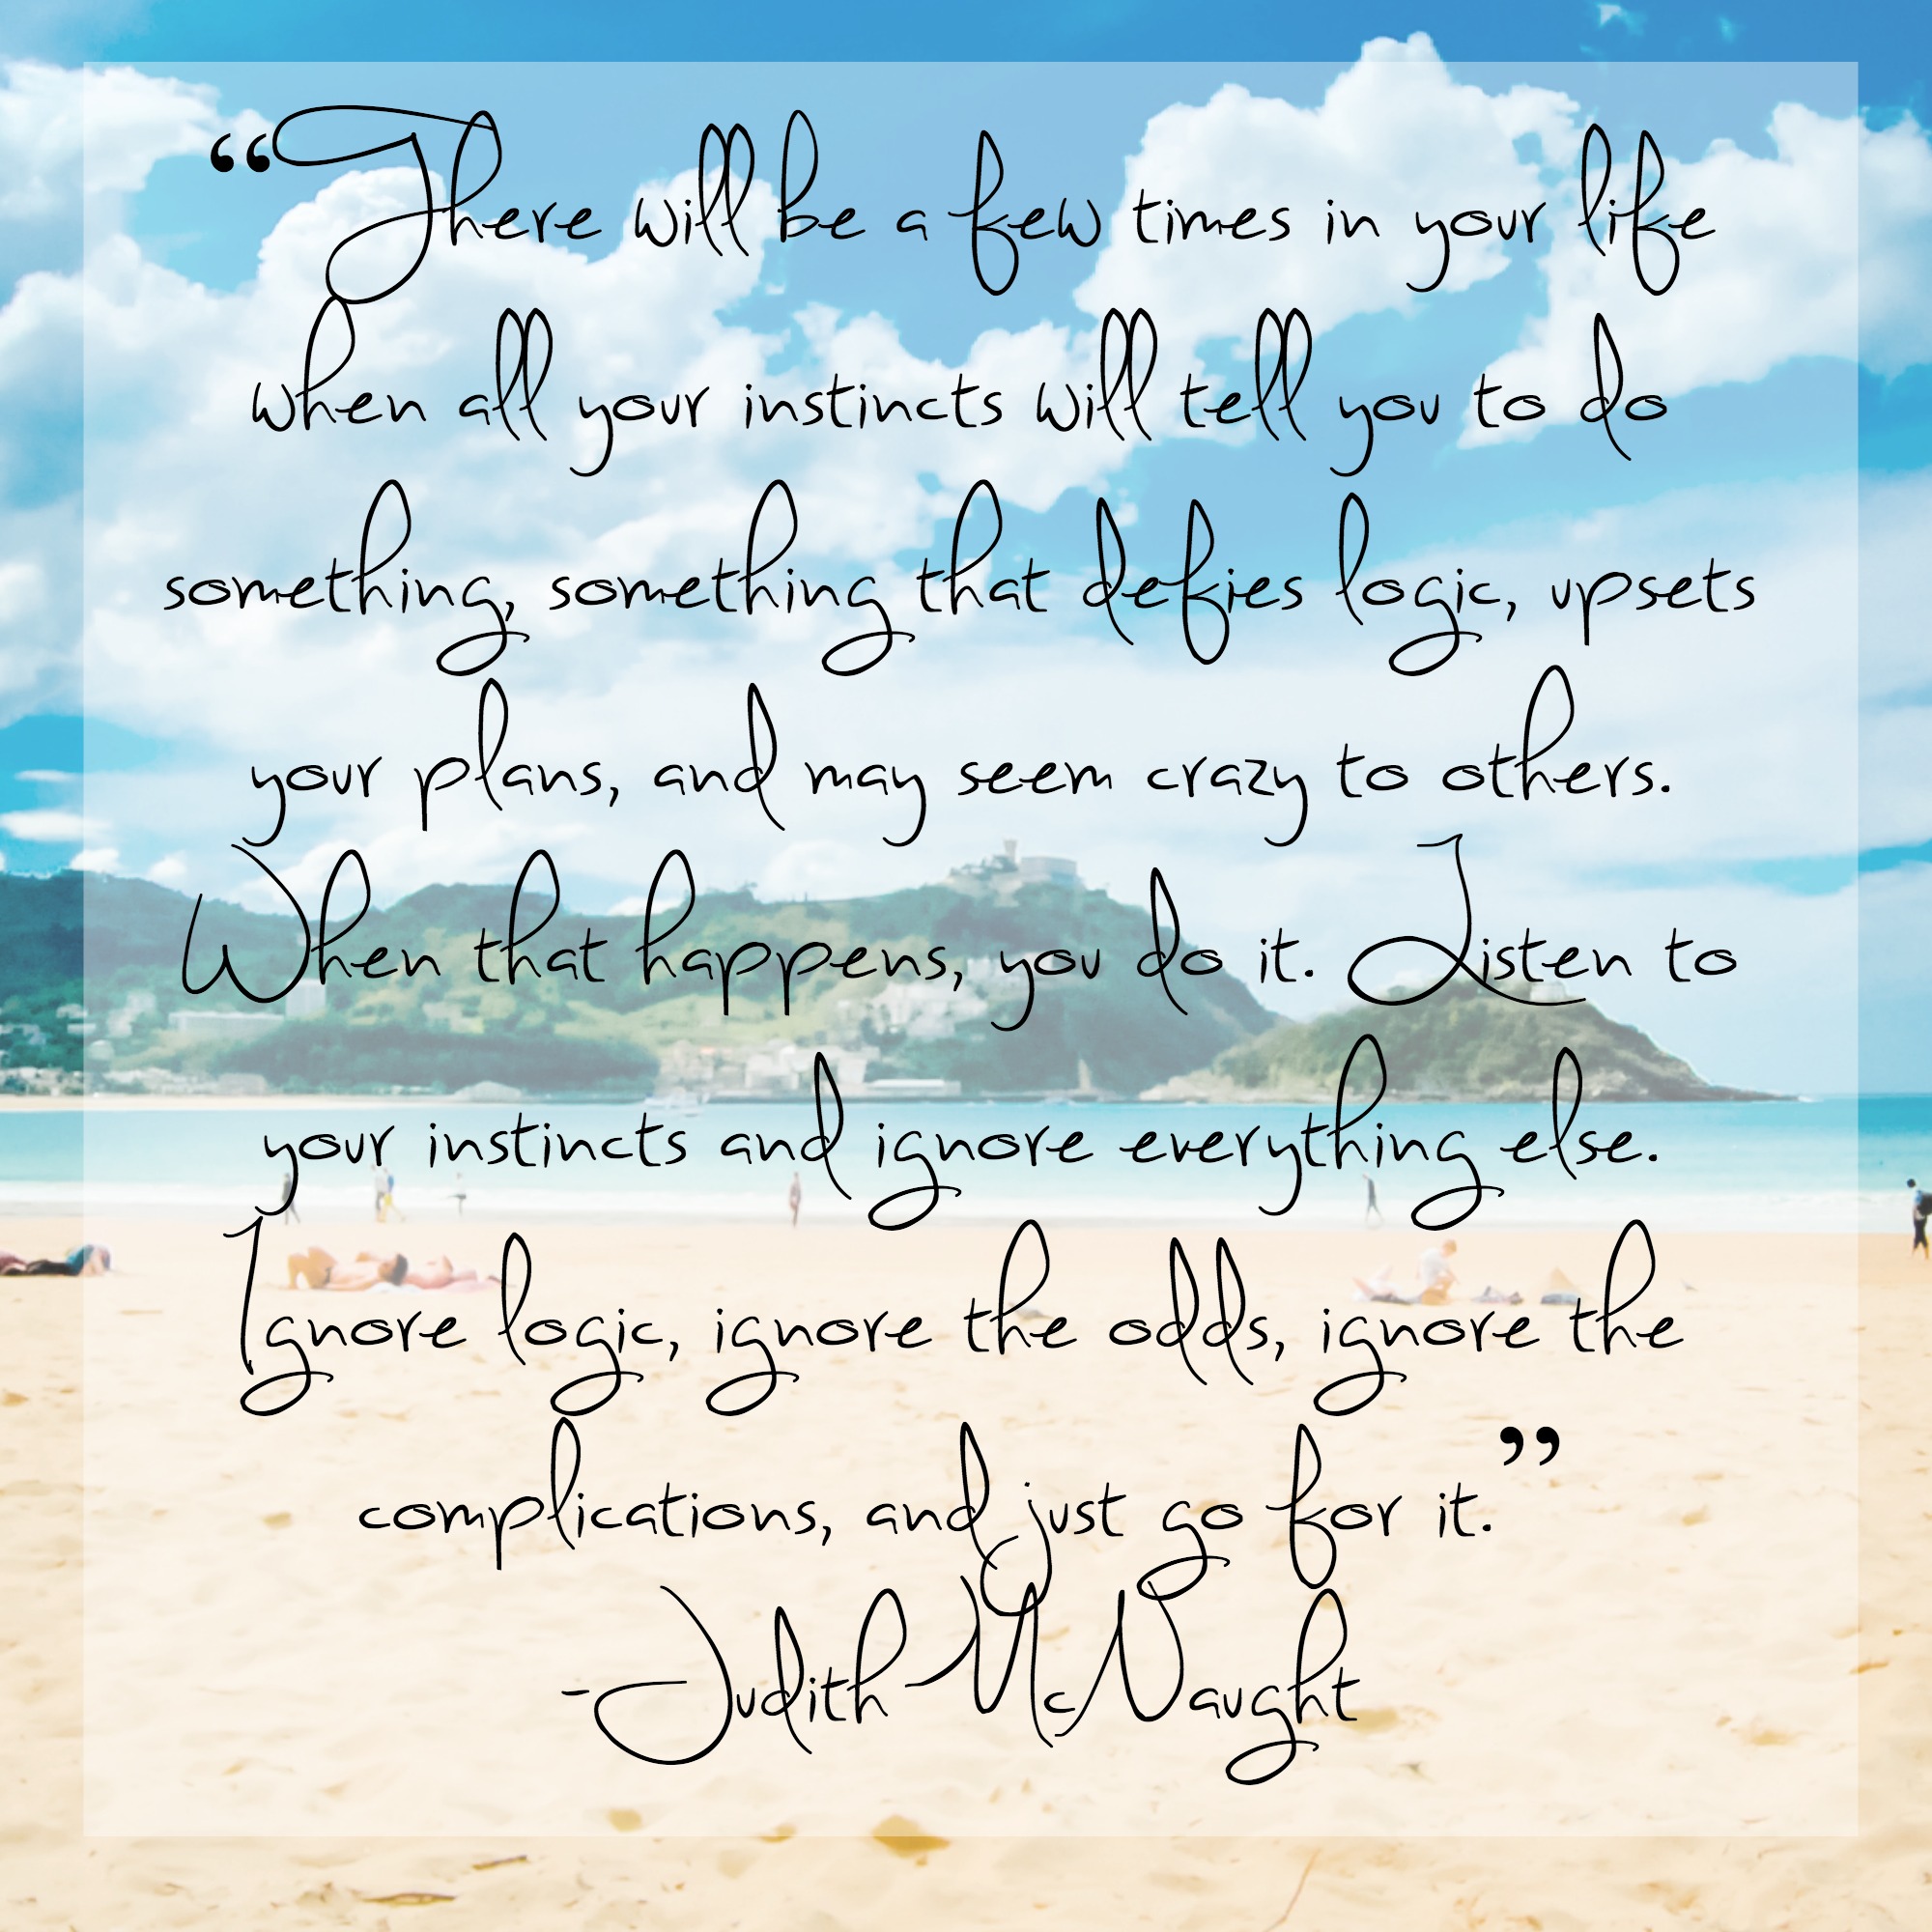 “There will be a few times in your life
when all your instincts will tell you to do
something, something that defies logic, upsets
your plans, and may seem crazy to others.
When that happens, you do it. Listen to
your instincts and ignore everything else.
Ignore logic, ignore the odds, ignore the
complications, and just go for it.”
-Judith McNaught